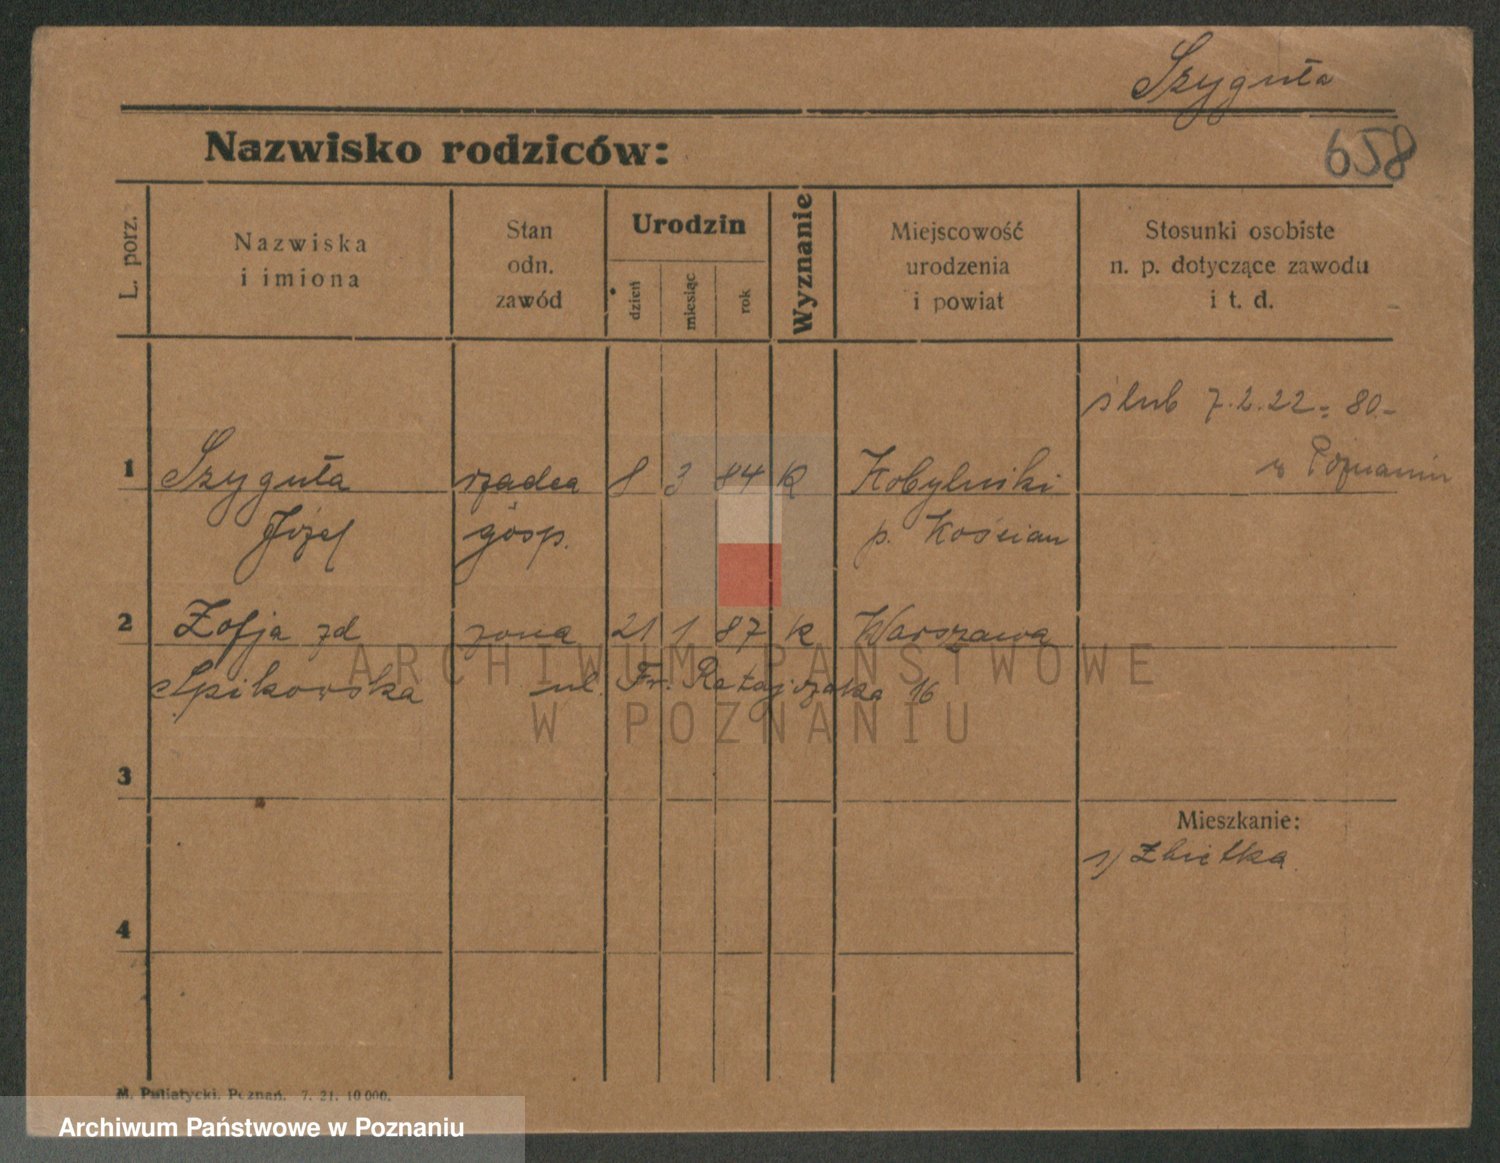 Szyguła
658
Nazwisko rodziców:
L. porz.
Nazwiska
i imiona
Stan
odn.
zawód
Urodzin
dzień
miesiąc
rok
Wyznanie
Miejscowość
urodzenia
i powiat
Stosunki osobiste
n. p. dotyczące zawodu
i t. d.
ślub 7.2.22 = 80.-
w Poznaniu
1 Szyguła rządca 8 3 84 K Kobylniki
Józef gosp. p. Kościan
2 Zofja zd żona 21 1 87 K Warszawa
Spikowska ul. Fr. Ratajczaka 16
3
Mieszkanie:
1) Zbietka
4
M. Putiatycki. Poznań. 7. 21. 10 000.
ARCHIWUM PAŃSTWOWE
W POZNANIU
Archiwum Państwowe w Poznaniu